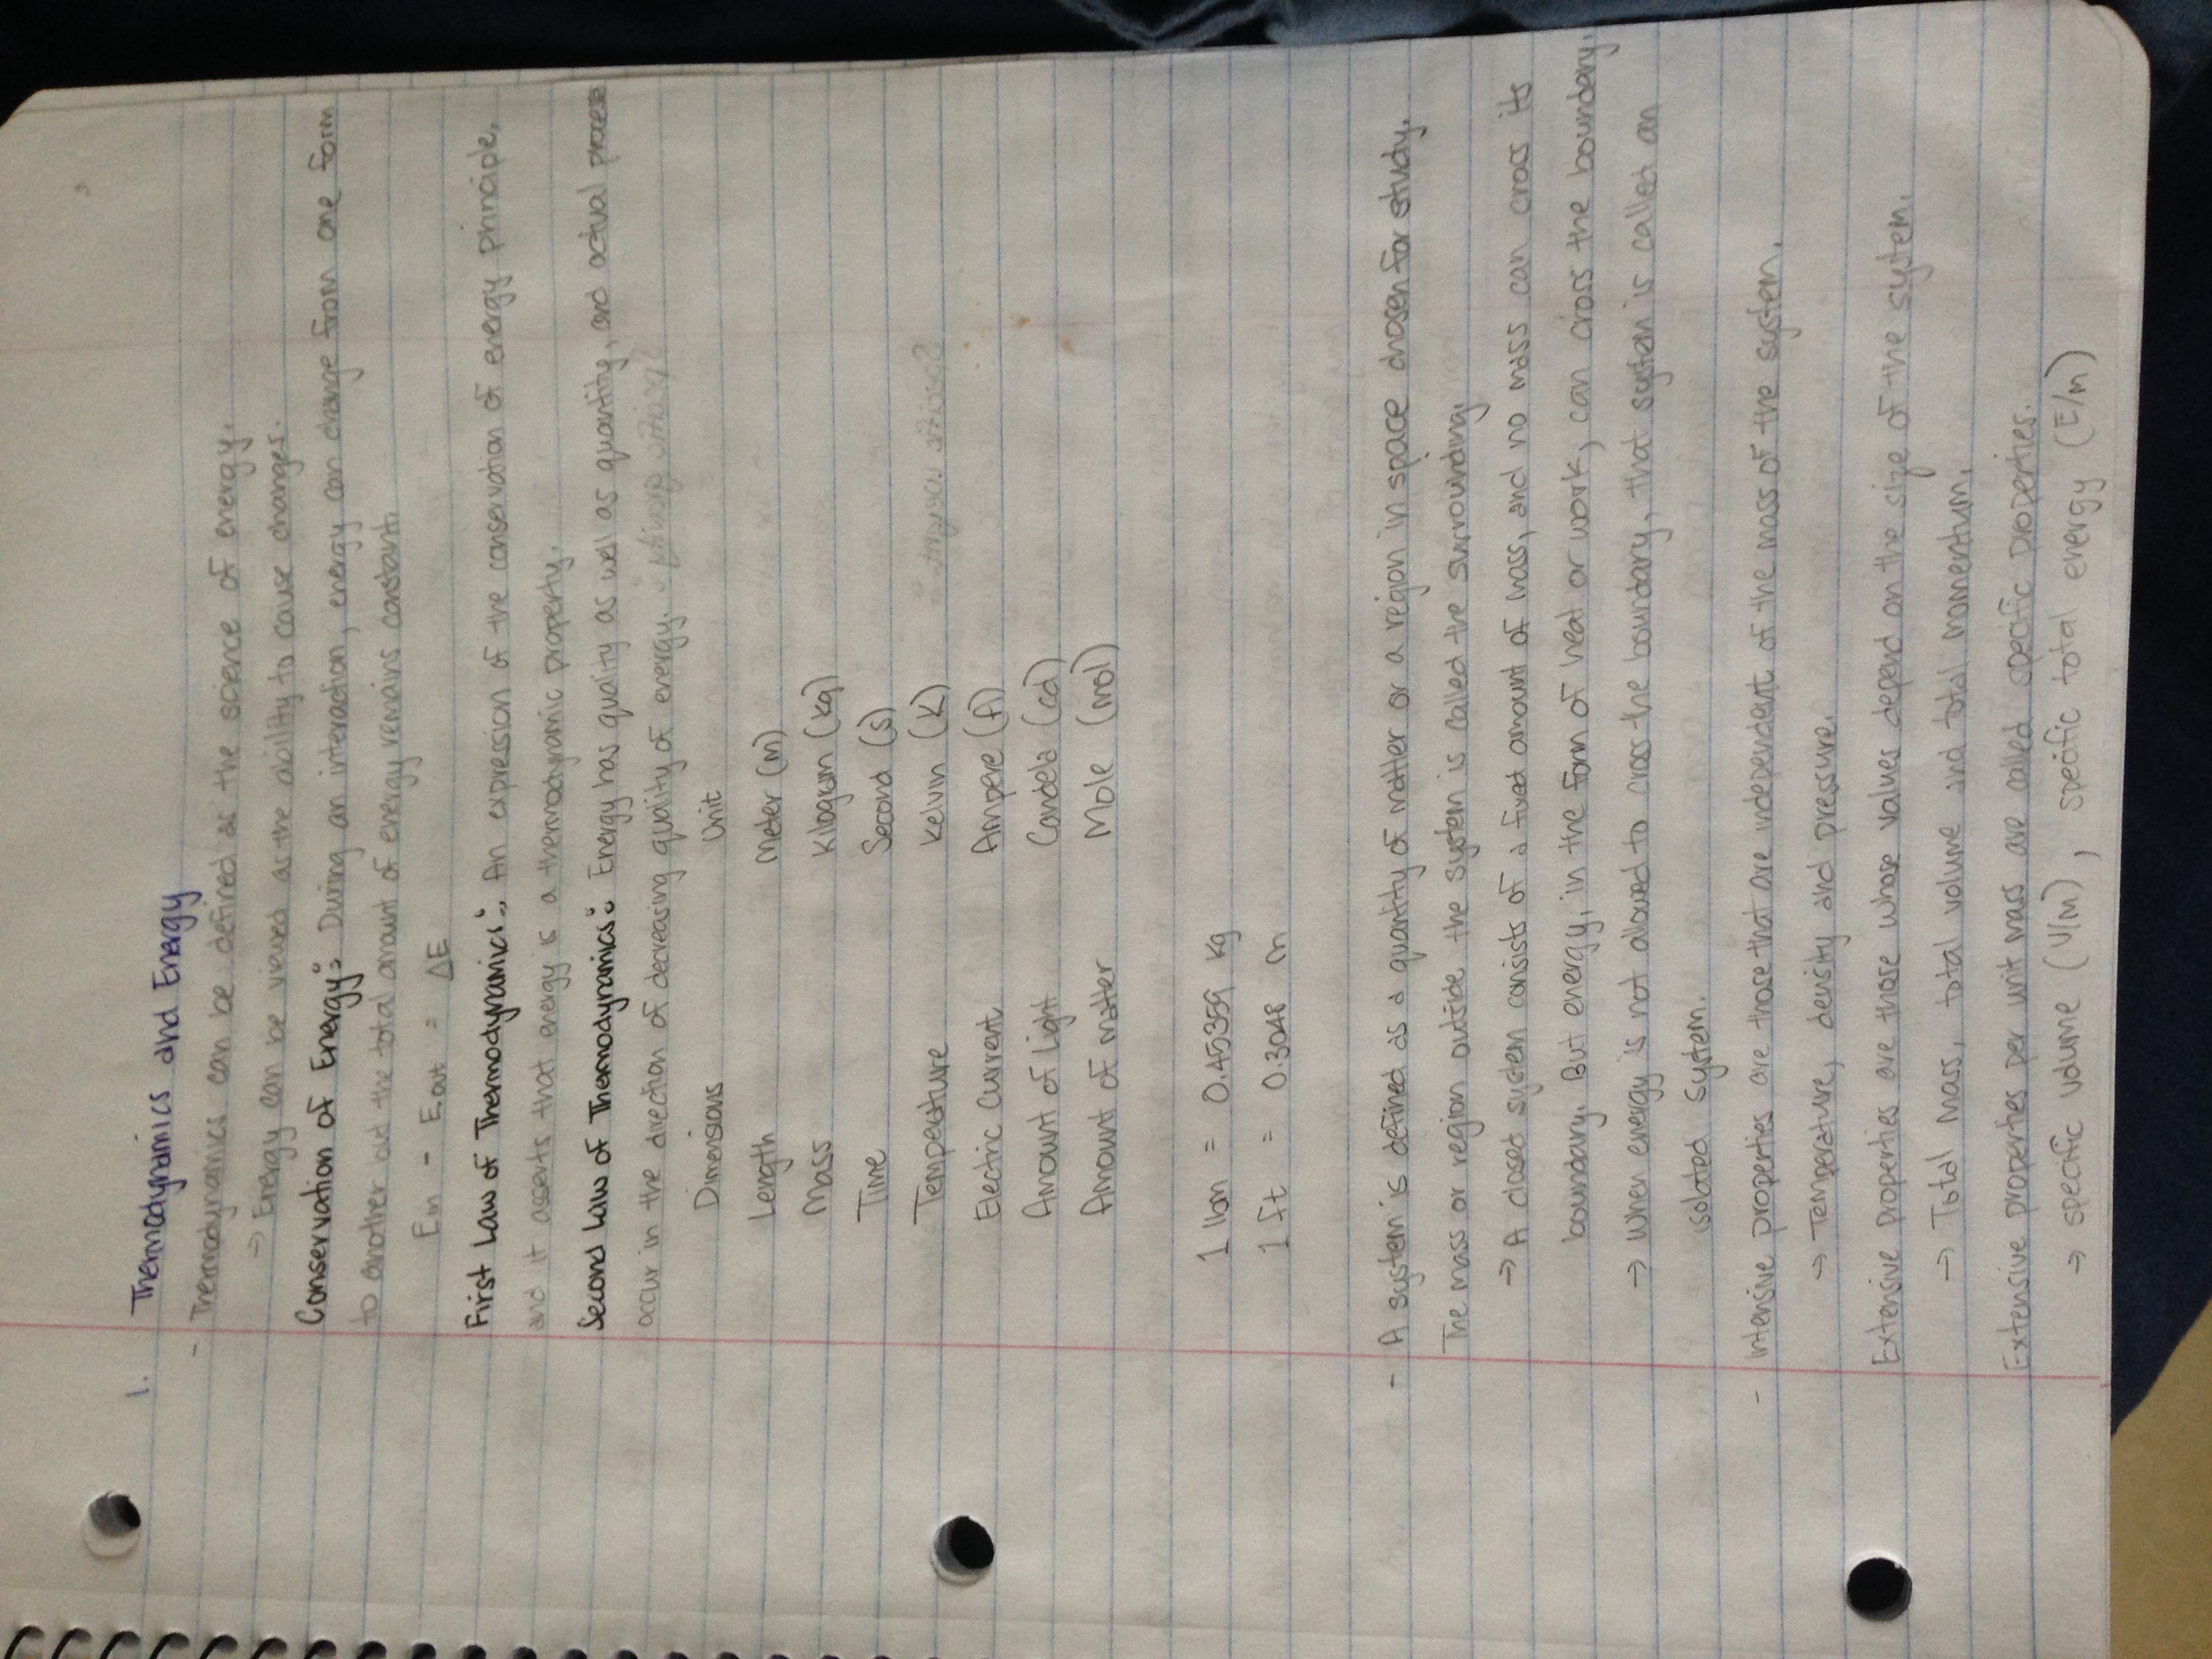 1. Thermodynamics and Energy
- Thermodynamics can be defined as the science of energy.
→ Energy can be viewed as the ability to cause changes.
Conservation of Energy: During an interaction, energy can change from one form
to another but the total amount of energy remains constant.
Ein - Eout = ΔE
First Law of Thermodynamics: An expression of the conservation of energy principle,
and it asserts that energy is a thermodynamic property.
Second Law of Thermodynamics: Energy has quality as well as quantity, and actual process
occur in the direction of decreasing quality of energy.
Dimensions Unit
Length Meter (m)
Mass Kilogram (kg)
Time Second (s)
Temperature Kelvin (K)
Electric Current Ampere (A)
Amount of Light Candela (cd)
Amount of Matter Mole (mol)
1 lbm = 0.45359 kg
1 ft = 0.3048 m
- A system is defined as a quantity of matter or a region in space chosen for study.
The mass or region outside the system is called the surrounding.
→ A closed system consists of a fixed amount of mass, and no mass can cross its
boundary. But energy, in the form of heat or work, can cross the boundary.
→ When energy is not allowed to cross the boundary, that system is called an
isolated system.
- Intensive properties are those that are independent of the mass of the system.
→ Temperature, density and pressure.
Extensive properties are those whose values depend on the size of the system.
→ Total mass, total volume and total momentum.
Extensive properties per unit mass are called specific properties.
→ specific volume (V/m), specific total energy (E/m)